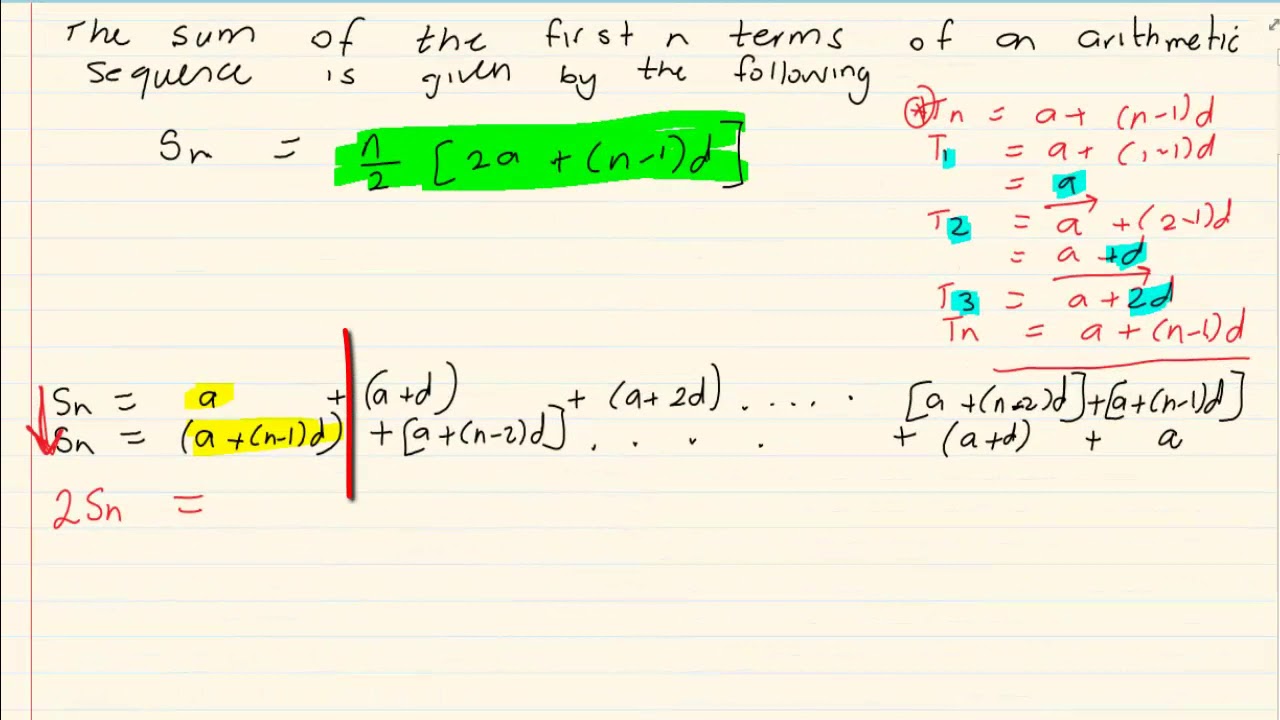 The sum of the first n terms of an arithmetic
sequence is given by the following
Sn = n/2 [2a + (n-1)d]
* Tn = a + (n-1)d
T1 = a + (1-1)d
= a
T2 = a + (2-1)d
= a + d
T3 = a + 2d
Tn = a + (n-1)d
Sn = a + (a+d) + (a+2d) ..... [a+(n-2)d]+[a+(n-1)d]
Sn = (a+(n-1)d) + [a+(n-2)d] . . . . + (a+d) + a
2Sn =